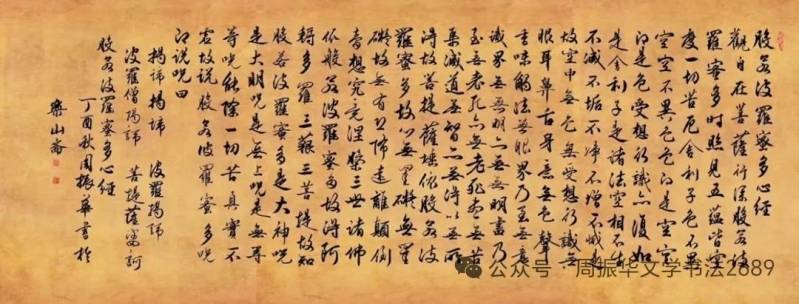 般若波羅蜜多心經
觀自在菩薩行深般若波
羅蜜多時照見五蘊皆空
度一切苦厄舍利子色不異
空空不異色色即是空空
即是色受想行識亦復如
是舍利子是諸法空相不生
不滅不垢不淨不增不減是
故空中無色無受想行識無
眼耳鼻舌身意無色聲
香味觸法無眼界乃至無意
識界無無明亦無無明盡乃
至無老死亦無老死盡無苦
集滅道無智亦無得以無所
得故菩提薩埵依般若波
羅蜜多故心無罣礙無罣
礙故無有恐怖遠離顛倒
夢想究竟涅槃三世諸佛
依般若波羅蜜多故得阿
耨多羅三藐三菩提故知
般若波羅蜜多是大神呪
是大明呪是無上呪是無等
等呪能除一切苦真實不
虛故說般若波羅蜜多呪
即說呪曰
揭諦揭諦 波羅揭諦
波羅僧揭諦 菩提薩婆訶
般若波羅蜜多心經
丁酉秋周振華書於
樂山齋
公众号·周振华文学书法2689